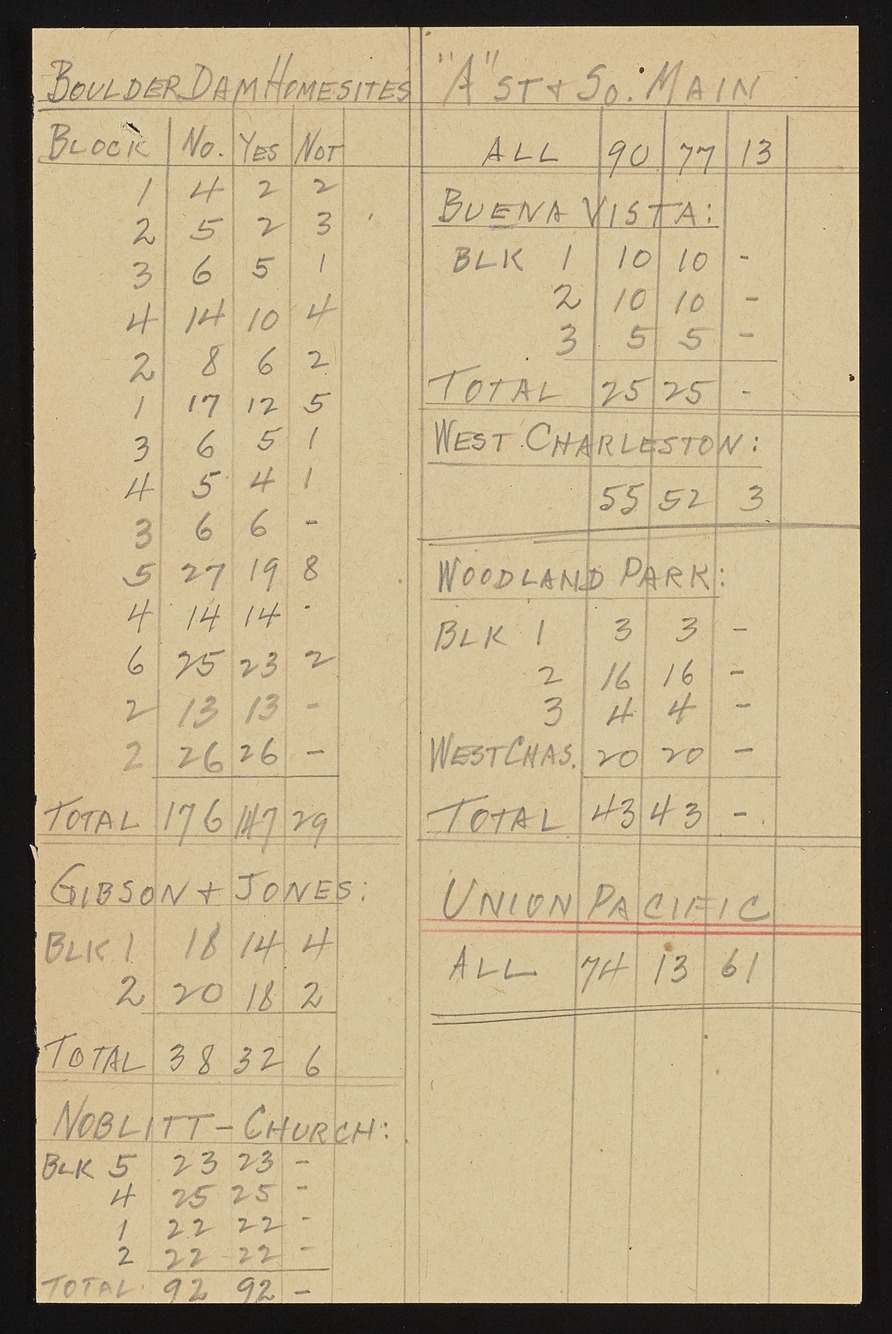 BOULDER DAM HOMESITES
BLOCK No. YES NOT
1 4 2 2
2 5 2 3
3 6 5 1
4 14 10 4
2 8 6 2
1 17 12 5
3 6 5 1
4 5 4 1
3 6 6 -
5 27 19 8
4 14 14 -
6 25 23 2
2 13 13 -
2 26 26 -
TOTAL 176 147 29
GIBSON + JONES:
BLK 1 18 14 4
2 20 18 2
TOTAL 38 32 6
NOBLITT - CHURCH:
BLK 5 23 23 -
4 25 25 -
1 22 22 -
2 22 22 -
TOTAL 92 92 -
"A" ST + SO. MAIN
ALL 90 77 13
BUENA VISTA:
BLK 1 10 10 -
2 10 10 -
3 5 5 -
TOTAL 25 25 -
WEST CHARLESTON:
55 52 3
WOODLAND PARK:
BLK 1 3 3 -
2 16 16 -
3 4 4 -
WEST CHAS. 20 20 -
TOTAL 43 43 -
UNION PACIFIC
ALL 74 13 61